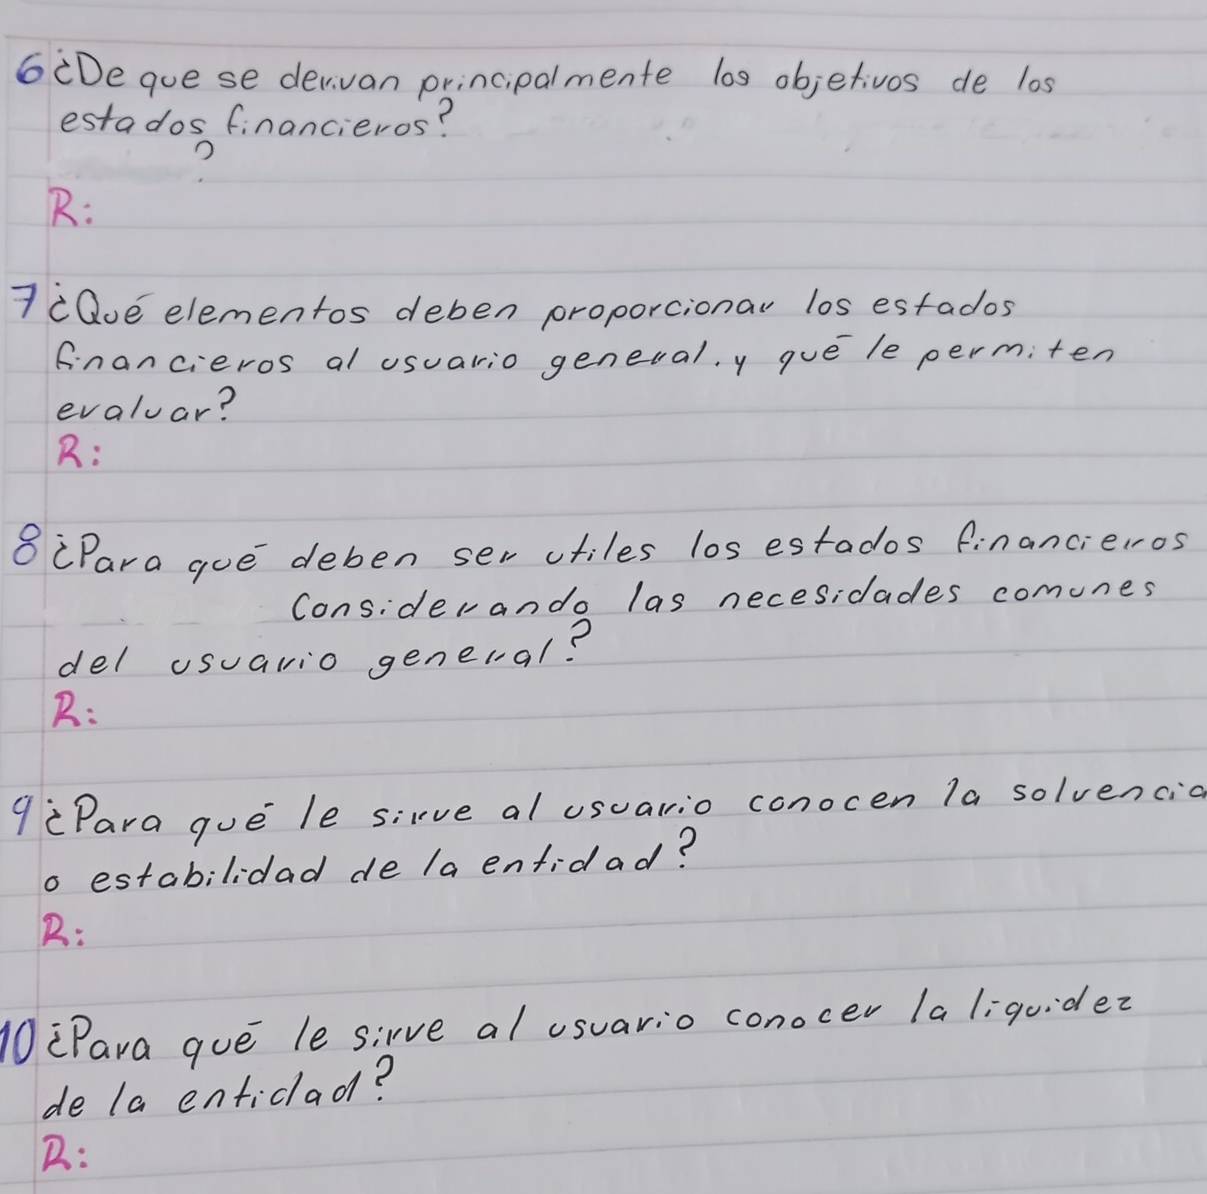 6 ¿De que se derivan principalmente los objetivos de los
estados financieros?
?
R:
7 ¿Qué elementos deben proporcionar los estados
financieros al usuario general, y qué le permiten
evaluar?
R:
8 ¿Para qué deben ser utiles los estados financieros
considerando las necesidades comunes
del usuario general?
R:
9 ¿Para qué le sirve al usuario conocen la solvencia
o estabilidad de la entidad?
R:
10 ¿Para qué le sirve al usuario conocer la liquidez
de la entidad?
R: